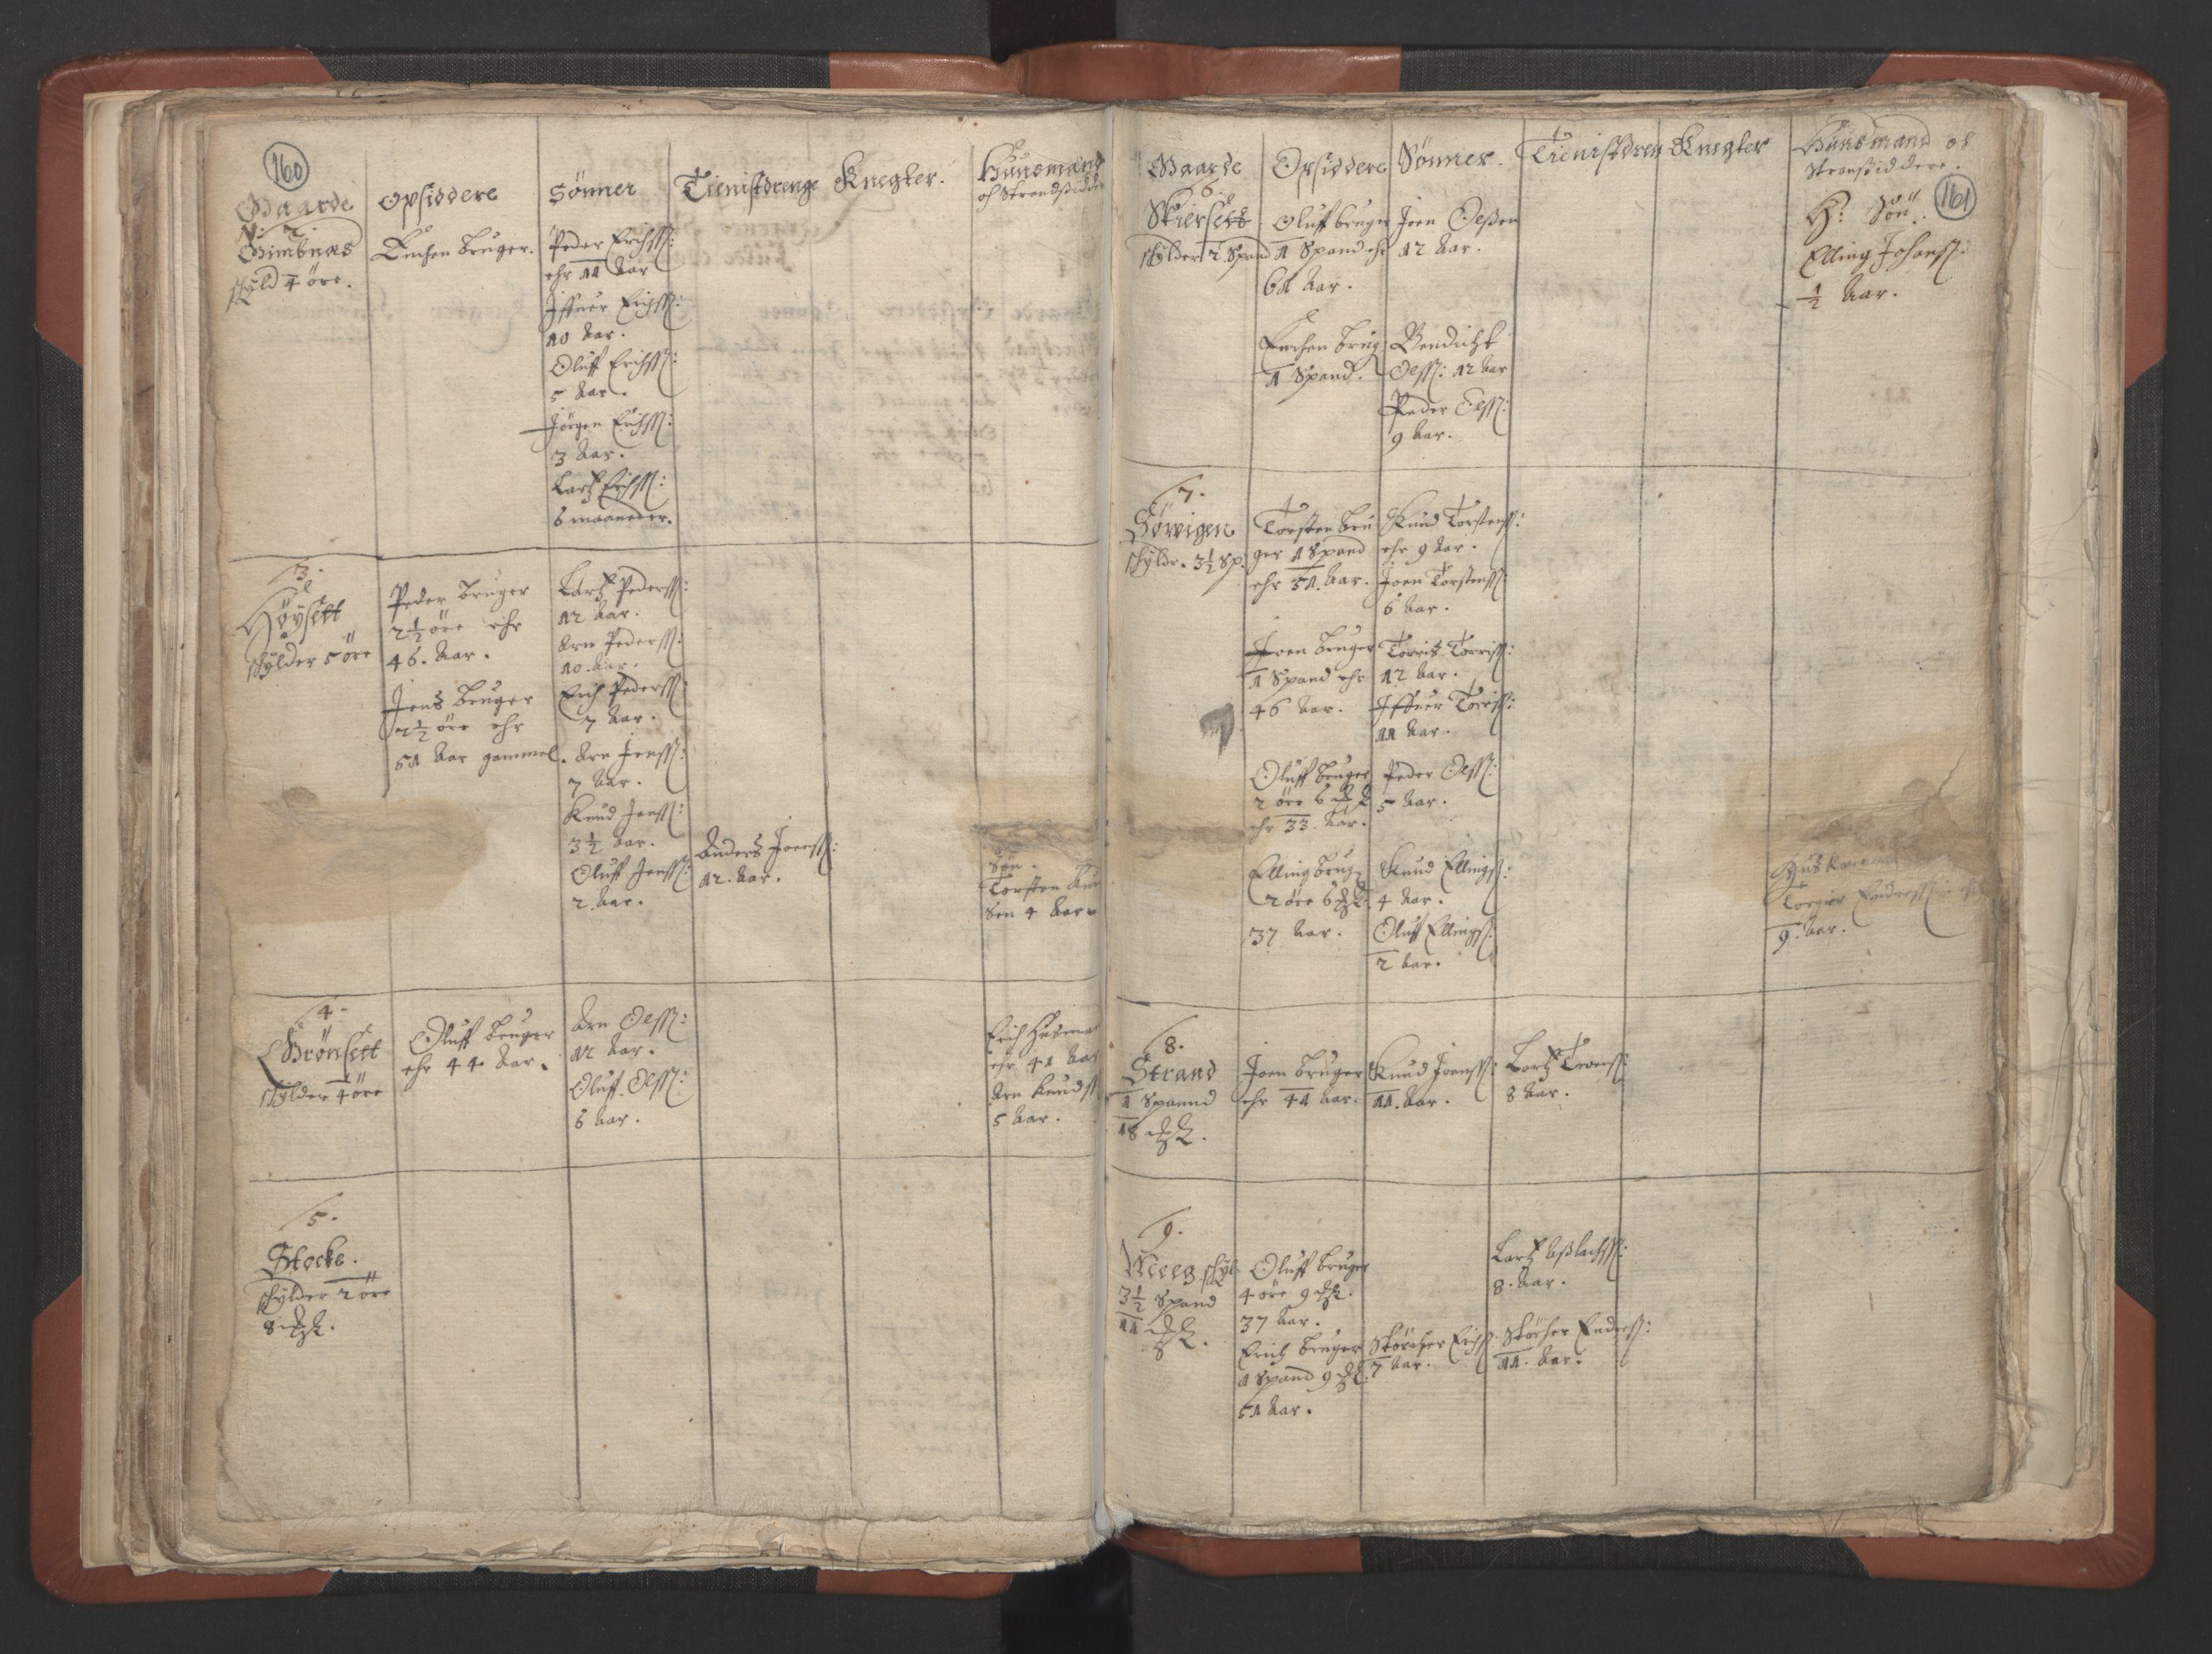 160
Gaarde
Opsiddere
Sönner
Tienistdrenge
Knegter.
Huusmänd
oc Strandsidder
N: 2.
Gimbnæs
schyld 4 öre.
Enchen bruger.
Peder Erichss:
ehr 11 Aar
Iffuer Erichss:
10 Aar.
Oluff Erichss:
5 Aar.
Jörgen Erichss:
3 Aar.
Lartz Erichss:
6 maaneder.
3.
Höysett
schylder 5 öre
Peder bruger
2½ öre ehr
46. Aar.
Jens bruger
2½ öre ehr
51 Aar gammel.
Lartz Pederss:
12 Aar.
Arn Pederss:
10. Aar.
Erich Pederss:
7 Aar.
Arn Jenss:
7 Aar.
Knud Jenss:
3½ Aar.
Oluff Jenss:
2. Aar.
Anders Joenss:
12. Aar.
Sön.
Torsten Knu
sen 4 Aar
4.
Brönsett
schylder 4 öre
Oluff bruger
ehr 44 Aar.
Arn Olss:
12 Aar.
Oluff. Olss:
6 Aar.
Erich Husma
ehr 41 Aar
Arn Knudss
5 Aar.
5.
Stocke.
schylder 2 öre
8
161
Gaarde
Opsiddere
Sönner.
Tienistdren
Knegter
Huusmand oc
Stransiddere.
6.
Skiersett
schylder 2. Spand
Oluff bruger
1 Spand ehr
61 Aar.
Enchen brug
1 Spand.
Joen Olssen
12 Aar.
Bendicht
Olss: 12 Aar
Peder Olss:
9 Aar.
H: Sön.
Elling Johanss:
½ Aar.
7.
Sövigen
schyldr. 3½ Sp:
Torsten bru
ger 1 Spand
ehr 51. Aar.
Joen bruger
1 Spand ehr
46 Aar.
Oluff bruger
2 öre 6
ehr 33. Aar.
Elling brug
2 öre 6
37 Aar.
Knud Torstenss:
ehr 9 Aar.
Joen Torstenss:
6 Aar.
Torris Torriss:
12 Aar.
Iffuer Torriss:
11 Aar.
Peder Olss:
5 Aar.
Knud Ellingss:
4 Aar.
Oluff Ellingss:
2 Aar.
9. Aar.
8.
Strand
1 Spannd
18
Joen bruger
ehr 41 Aar.
Knud Joenss:
11. Aar.
Lartz
8 Aar.
9.
schyl:
3½ Spand
11
Oluff bruger
4 öre 9
37 Aar.
Erich bruger
1 Spand 9
51 Aar.
7 Aar.
Lartz Aslachss:
8. Aar.
Endress:
11. Aar.